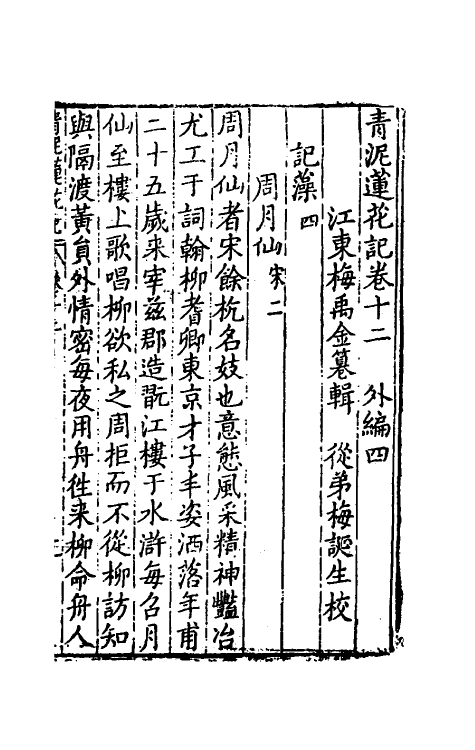 青泥蓮花記卷十二　外編四
江東梅禹金纂輯　從弟梅誕生校
記藻四
周月仙宋二
周月仙者宋餘杭名妓也意態風采精神豔冶
尤工于詞翰柳耆卿東京才子丰姿洒落年甫
二十五歲来宰兹郡造翫江樓于水滸每召月
仙至樓上歌唱柳欲私之周拒而不從柳訪知
與隔渡黃員外情密每夜用舟徃来柳命舟人